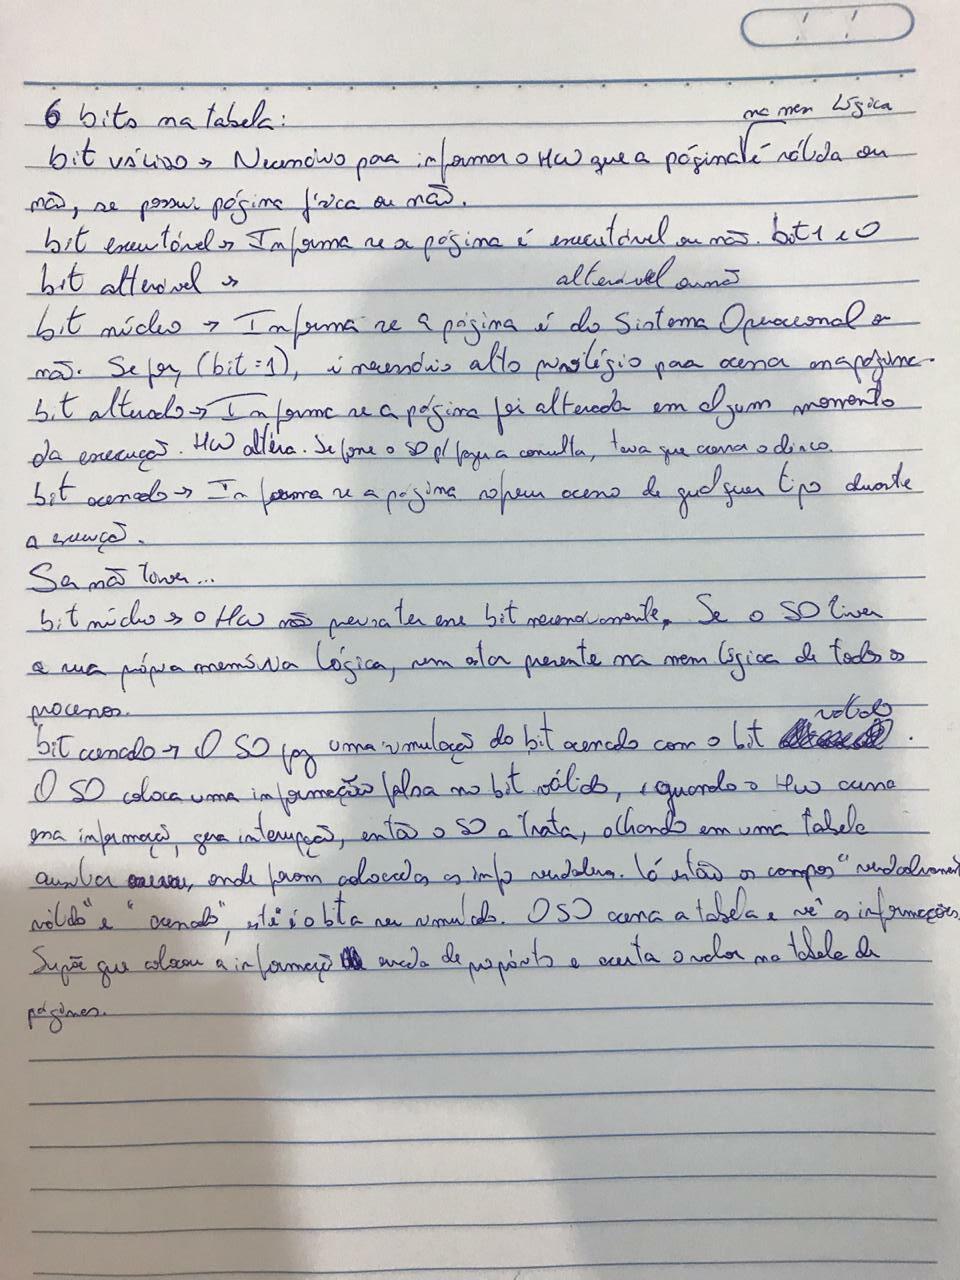 6 bits na tabela:
na mem lógica
bit válido → Necessário para informar o HW que a página é válida ou
não, se possui página física ou não.
bit executável → Informa se a página é executável ou não. bit 1 e 0
bit alterável → alterável ou não
bit núcleo → Informa se a página é do Sistema Operacional ou
não. Se for, (bit=1), é necessário alto privilégio para acessar essa página.
bit alterado → Informa se a página foi alterada em algum momento
da execução. HW altera. Se fosse o SO p/ fazer a consulta, teria que acessar o disco.
bit acessado → Informa se a página sofreu acesso de qualquer tipo durante
a execução.
Se não tiver...
bit núcleo → o HW não precisa ter esse bit necessariamente. Se o SO tiver
a sua própria memória lógica, sem estar presente na mem lógica de todos os
processos.
válido
bit acessado → O SO faz uma simulação do bit acessado com o bit .
O SO coloca uma informação falsa no bit válido, e quando o HW acessa
essa informação, gera interrupção, então o SO a trata, olhando em uma tabela
auxiliar, onde foram colocadas as info verdadeiras. lá estão os campos "verdadeiramente
válido" e "acessado", este é o bit a ser simulado. O SO acessa a tabela e vê as informações,
Supõe que colocou a informação errada de propósito e acerta o valor na tabela de
páginas.